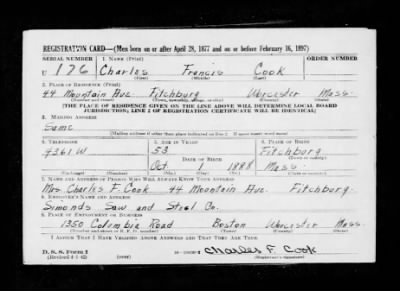 REGISTRATION CARD—(Men born on or after April 28, 1877 and on or before February 16, 1897)
SERIAL NUMBER 1. NAME (Print) ORDER NUMBER
U 176 Charles Francis Cook
(First) (Middle) (Last)
2. PLACE OF RESIDENCE (Print)
44 Mountain Ave Fitchburg Worcester Mass.
(Number and street) (Town, township, village, or city) (County) (State)
[THE PLACE OF RESIDENCE GIVEN ON THE LINE ABOVE WILL DETERMINE LOCAL BOARD
JURISDICTION; LINE 2 OF REGISTRATION CERTIFICATE WILL BE IDENTICAL]
3. MAILING ADDRESS
Same
[Mailing address if other than place indicated on line 2. If same insert word same]
4. TELEPHONE 5. AGE IN YEARS 6. PLACE OF BIRTH
4361 W 53 Fitchburg
DATE OF BIRTH (Town or county)
Oct 1 1888 Mass.
(Exchange) (Number) (Mo.) (Day) (Yr.) (State or country)
7. NAME AND ADDRESS OF PERSON WHO WILL ALWAYS KNOW YOUR ADDRESS
Mrs. Charles F. Cook 44 Mountain Ave. Fitchburg.
8. EMPLOYER'S NAME AND ADDRESS
Simonds Saw and Steel Co.
9. PLACE OF EMPLOYMENT OR BUSINESS
1350 Columbia Road Boston Worcester Mass
(Number and street or R. F. D. number) (Town) (County) (State)
I AFFIRM THAT I HAVE VERIFIED ABOVE ANSWERS AND THAT THEY ARE TRUE.
D. S. S. Form 1
(Revised 4-1-42) (over) Charles F. Cook